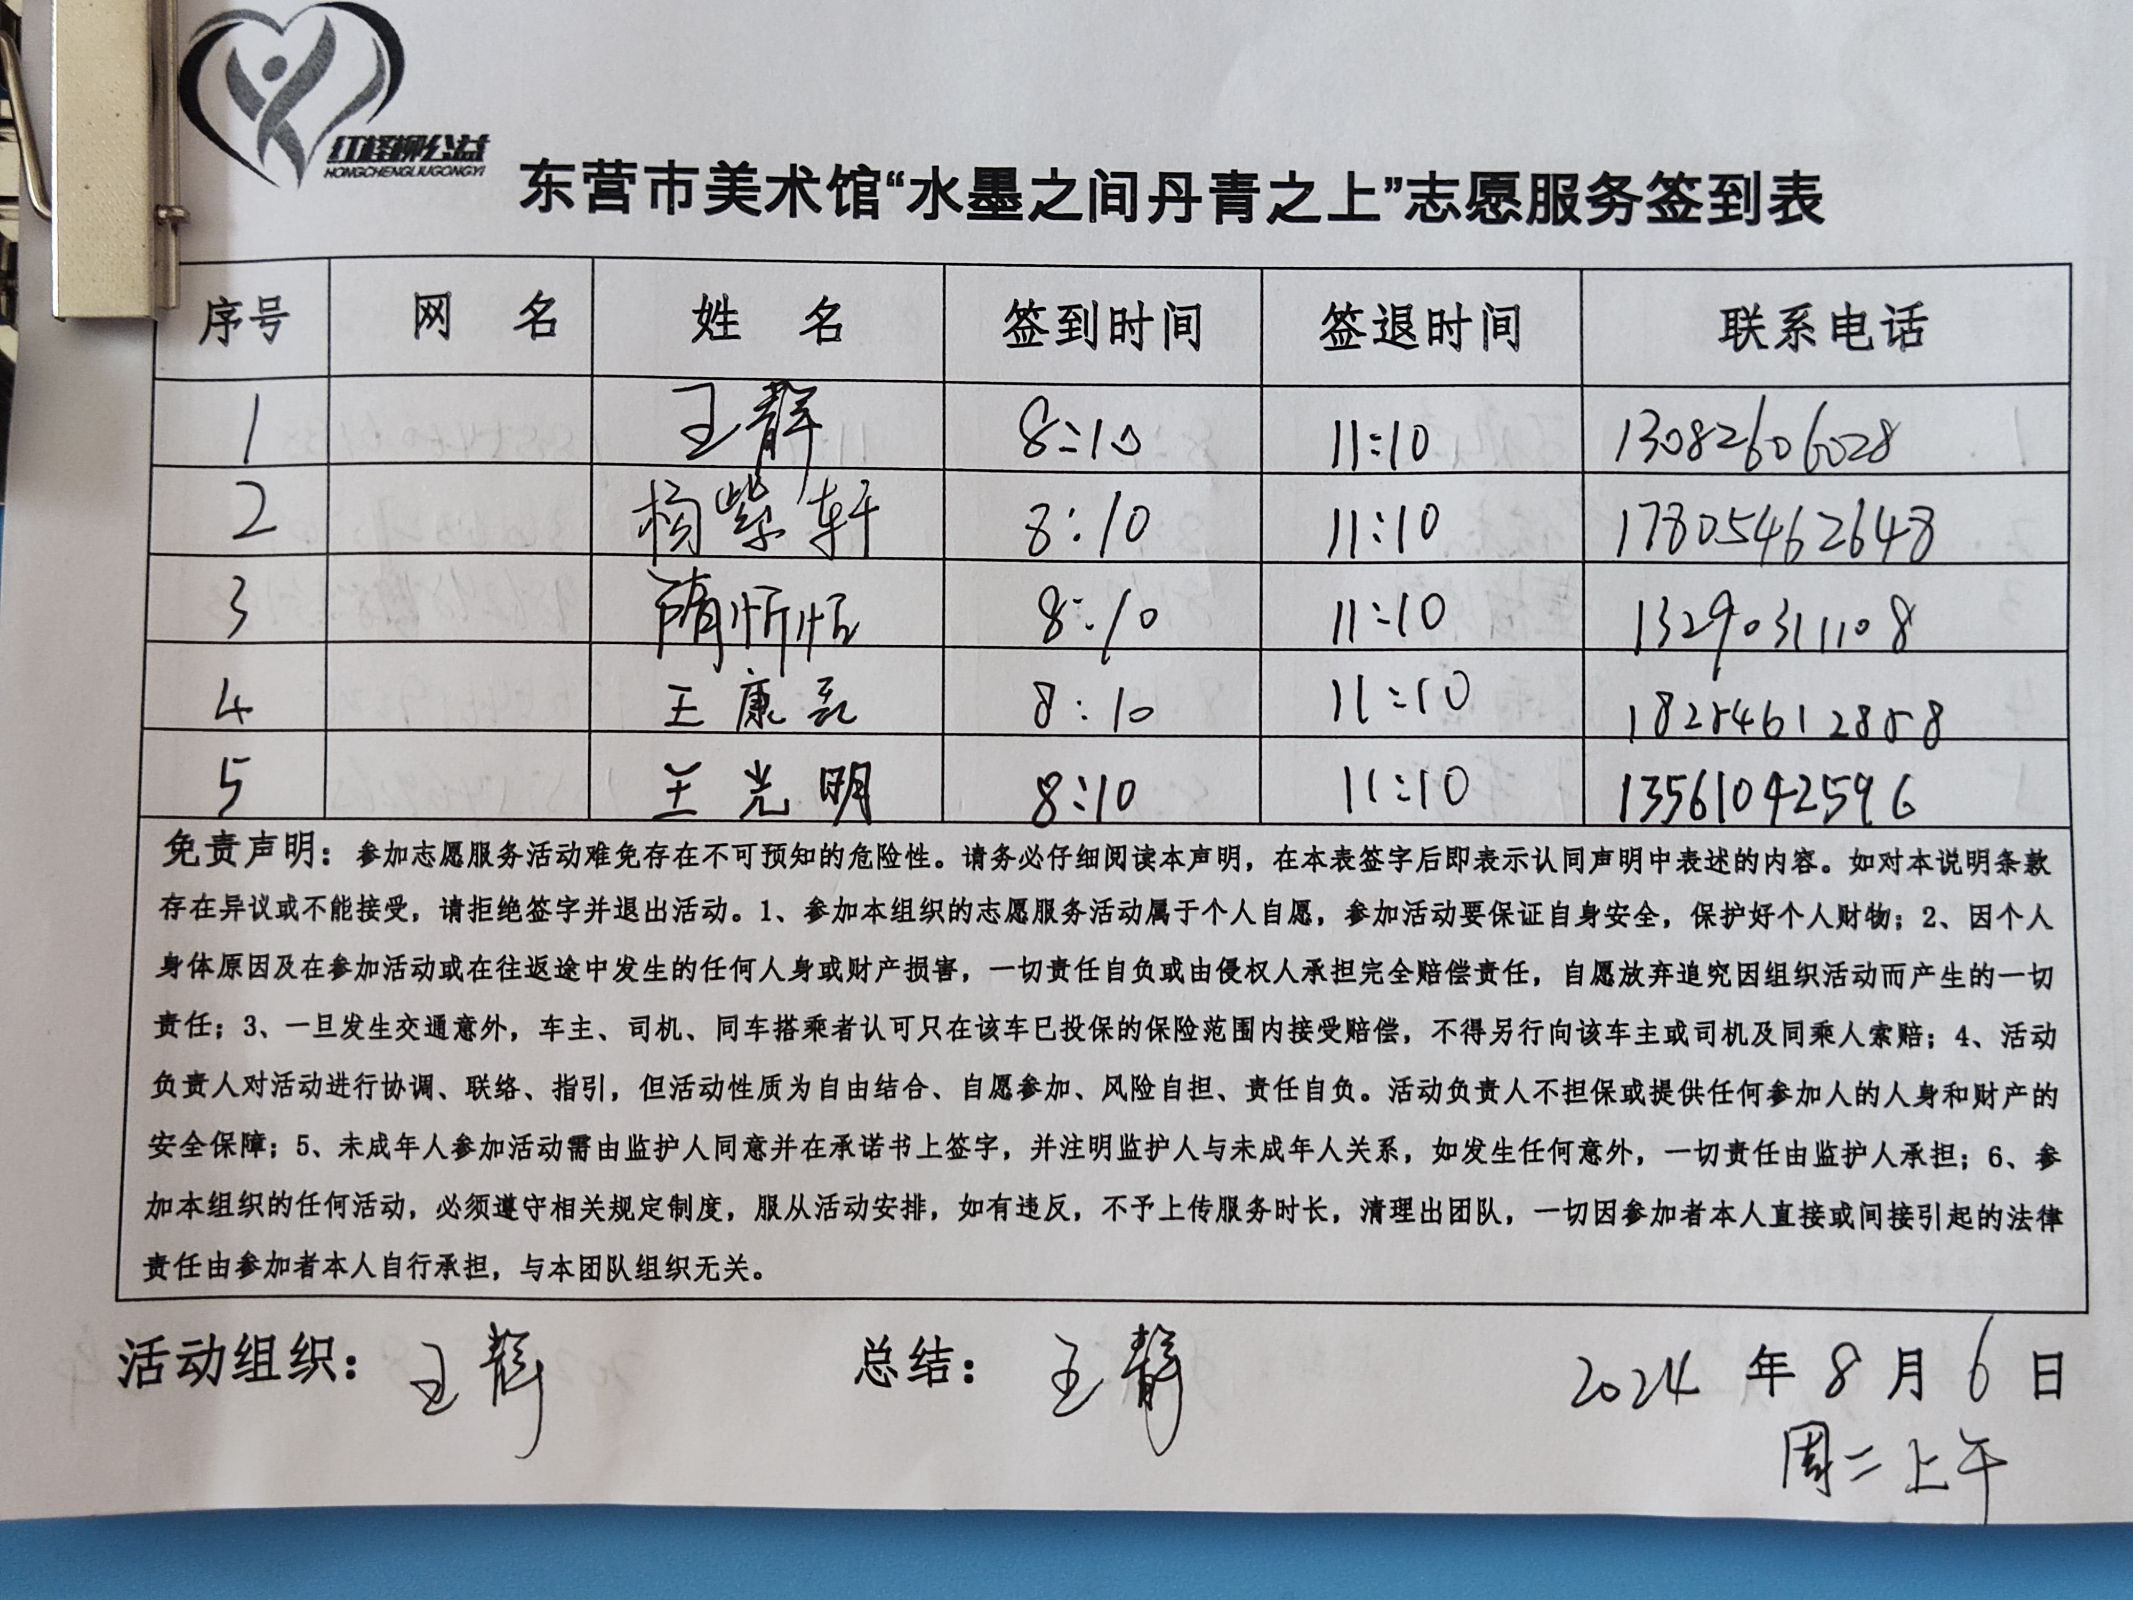 红柽柳公益
HONGCHENGLIUGONGYI
东营市美术馆“水墨之间丹青之上”志愿服务签到表
序号 网 名 姓 名 签到时间 签退时间 联系电话
1 王静 8:10 11:10 13082606028
2 杨紫轩 8:10 11:10 17805462648
3 隋忻恬 8:10 11:10 13290311108
4 王康 8:10 11:10 18254612858
5 王光明 8:10 11:10 13561042596
免责声明：参加志愿服务活动难免存在不可预知的危险性。请务必仔细阅读本声明，在本表签字后即表示认同声明中表述的内容。如对本说明条款
存在异议或不能接受，请拒绝签字并退出活动。1、参加本组织的志愿服务活动属于个人自愿，参加活动要保证自身安全，保护好个人财物；2、因个人
身体原因及在参加活动或在往返途中发生的任何人身或财产损害，一切责任自负或由侵权人承担完全赔偿责任，自愿放弃追究因组织活动而产生的一切
责任；3、一旦发生交通意外，车主、司机、同车搭乘者认可只在该车已投保的保险范围内接受赔偿，不得另行向该车主或司机及同乘人索赔；4、活动
负责人对活动进行协调、联络、指引，但活动性质为自由结合、自愿参加、风险自担、责任自负。活动负责人不担保或提供任何参加人的人身和财产的
安全保障；5、未成年人参加活动需由监护人同意并在承诺书上签字，并注明监护人与未成年人关系，如发生任何意外，一切责任由监护人承担；6、参
加本组织的任何活动，必须遵守相关规定制度，服从活动安排，如有违反，不予上传服务时长，清理出团队，一切因参加者本人直接或间接引起的法律
责任由参加者本人自行承担，与本团队组织无关。
活动组织：王静 总结：王静 2024 年 8 月 6 日
周二上午